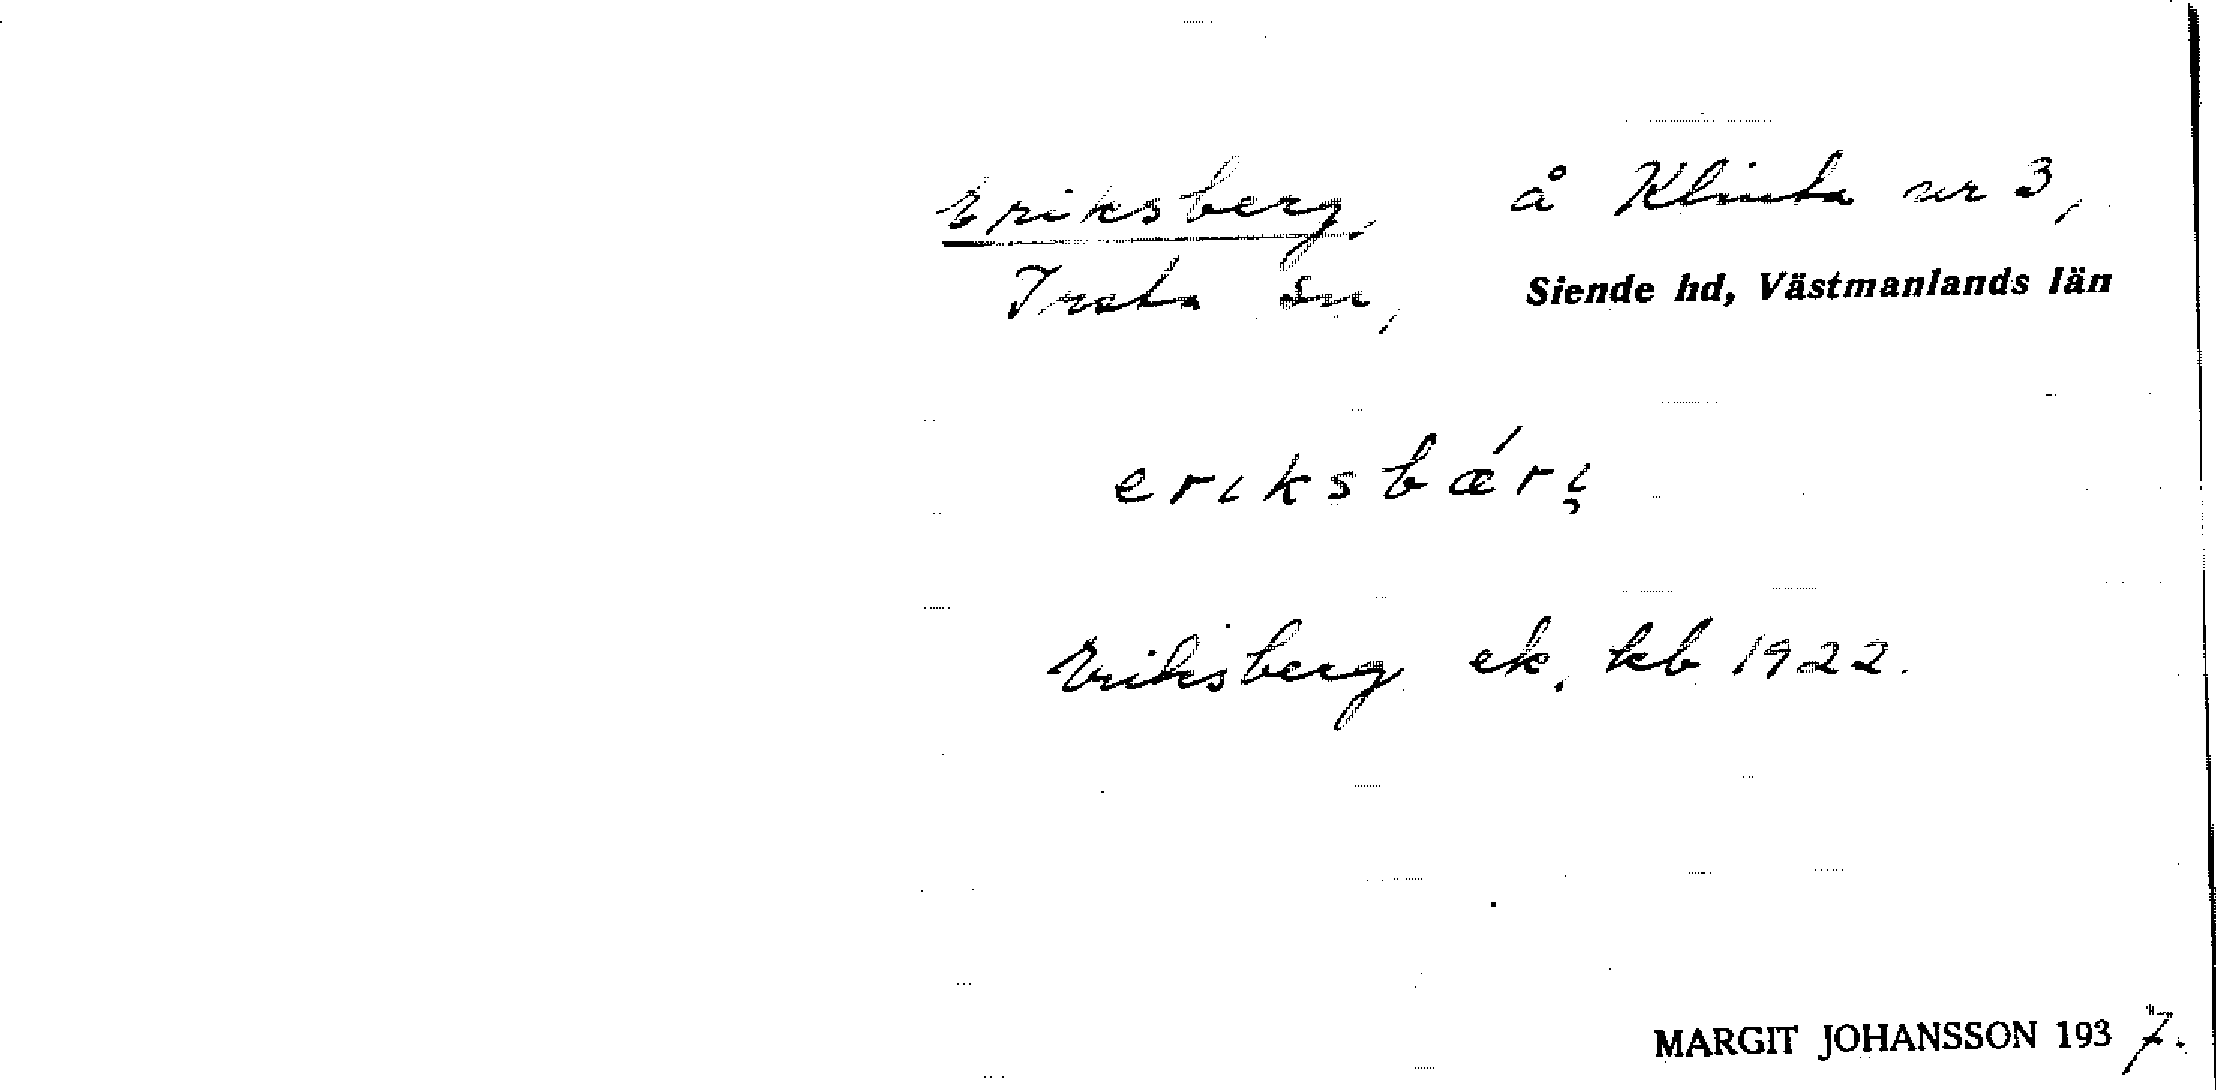 Eriksberg, å Klinta nr 3,
Irsta sn, Siende hd, Västmanlands län
eriksbǽri̡
Eriksberg ek. kb 1922.
MARGIT JOHANSSON 1937.